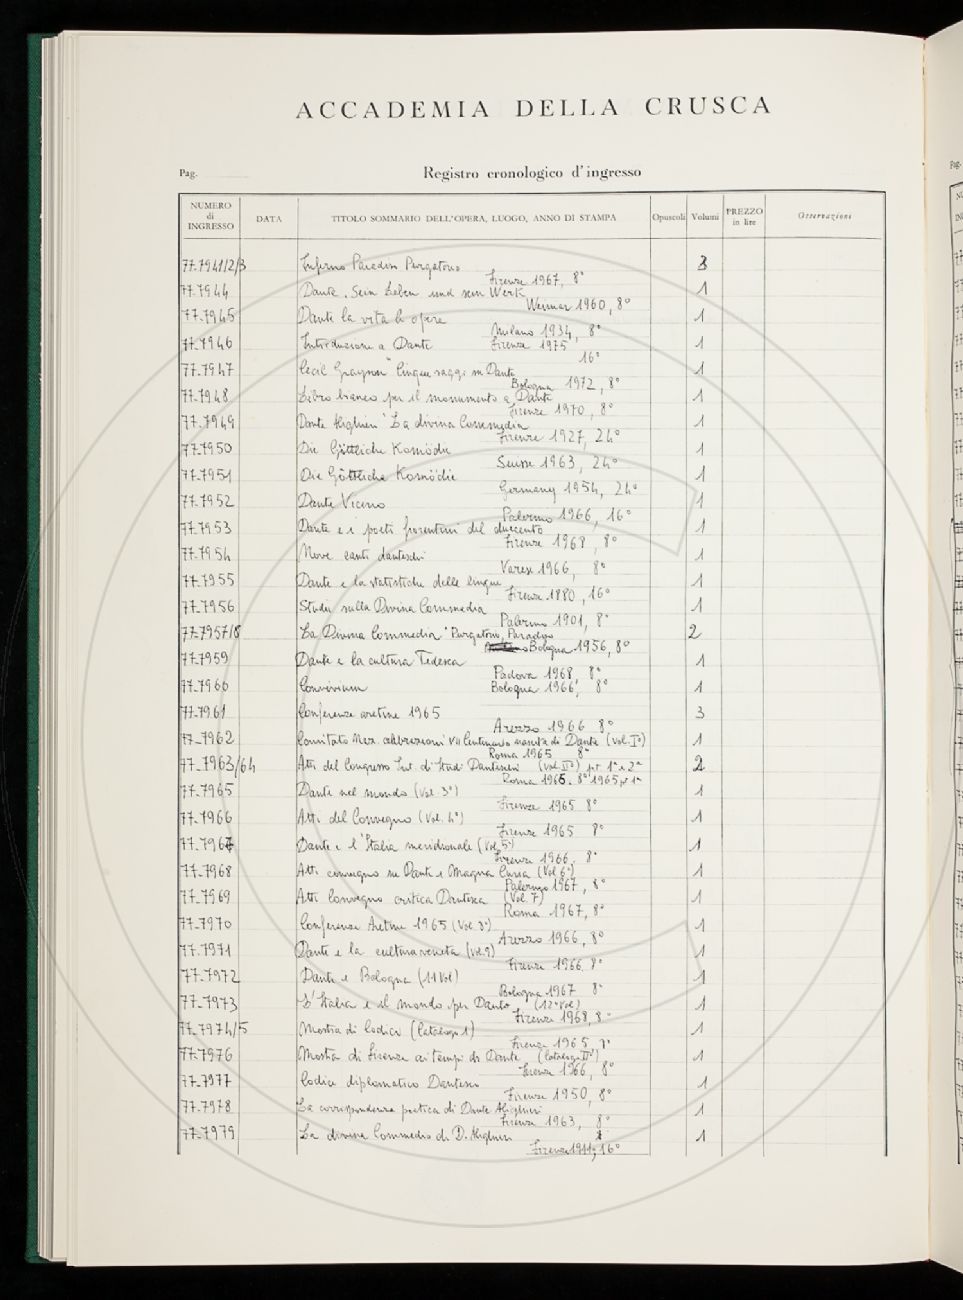 ACCADEMIA DELLA CRUSCA
Pag.
Registro cronologico d'ingresso
NUMERO di INGRESSO DATA TITOLO SOMMARIO DELL'OPERA, LUOGO, ANNO DI STAMPA Opuscoli Volumi PREZZO in lire Osservazioni
77-7941/2/3 Inferno Paradiso Purgatorio 3
Firenze 1967, 8°
77-7944 Dante. Sein Leben und sein Werk 1
Weimar 1960, 8°
77-7945 Dante la vita le opere 1
Milano 1934, 8°
77-7946 Introduzione a Dante Firenze 1975 1
16°
77-7947 Cecil Grayson "Cinque saggi su Dante 1
Bologna 1972, 8°
77-7948 Libro bianco per il monumento a Dante 1
Firenze 1970, 8°
77-7949 Dante Alighieri "La divina Commedia 1
Firenze 1927, 24°
77-7950 Die Göttliche Komödie 1
1963, 24°
77-7951 Die Göttliche Komödie 1
Germany 1954, 24°
77-7952 Dante Vicino 1
Palermo 1966, 16°
77-7953 Dante e i poeti fiorentini del duecento 1
Firenze 1968, 8°
77-7954 Nove canti danteschi 1
Varese 1966, 8°
77-7955 Dante e la statistiche delle lingue 1
Firenze 1880, 16°
77-7956 Studii sulla Divina Commedia 1
Palermo 1901, 8°
77-7957/8 La Divina Commedia "Purgatorio, Paradiso 2
Bologna 1956, 8°
77-7959 Dante e la cultura Tedesca 1
Padova 1968, 8°
77-7960 Convivium Bologna 1966, 8° 1
77-7961 Conferenze aretine 1965 3
Arezzo 1966 8°
77-7962 Comitato Naz. celebrazioni VII Centenario nascita di Dante (vol. I°) 1
Roma 1965 8°
77-7963/64 Atti del Congresso Int. di Studi Danteschi (vol. II°) pt. 1ª e 2ª 2
Roma 1965. 8° 1965 pt 1ª
77-7965 Dante nel mondo (Vol. 3°) 1
Firenze 1965 8°
77-7966 Atti del Convegno (Vol. 4°) 1
Firenze 1965 8°
77-7967 Dante e l'Italia meridionale (Vol. 5°) 1
Firenze 1966, 8°
77-7968 Atti convegno su Dante e Magna Curia (Vol 6°) 1
Palermo 1967, 8°
77-7969 Atti Convegno critica Dantesca (Vol. 7) 1
Roma 1967, 8°
77-7970 Conferenze Aretine 1965 (Vol. 8°) 1
Arezzo 1966, 8°
77-7971 Dante e la cultura veneta (vol. 9) 1
Firenze 1966. 8°
77-7972 Dante e Bologna (11 Vol) 1
Bologna 1967 8°
77-7973 L'Italia e il mondo per Dante (12° Vol) 1
Firenze 1968, 8°
77-7974/5 Mostra di Codici (Catalogo 1) 1
Firenze 1965, 8°
77-7976 Mostra di Firenze ai tempi di Dante (Catalogo II°) 1
Firenze 1966, 8°
77-7977 Codice diplomatico Dantesco 1
Firenze 1950, 8°
77-7978 La corrispondenza poetica di Dante Alighieri 1
Firenze 1963, 8°
77-7979 La divina Commedia di D. Alighieri 1
Firenze 1911, 16°